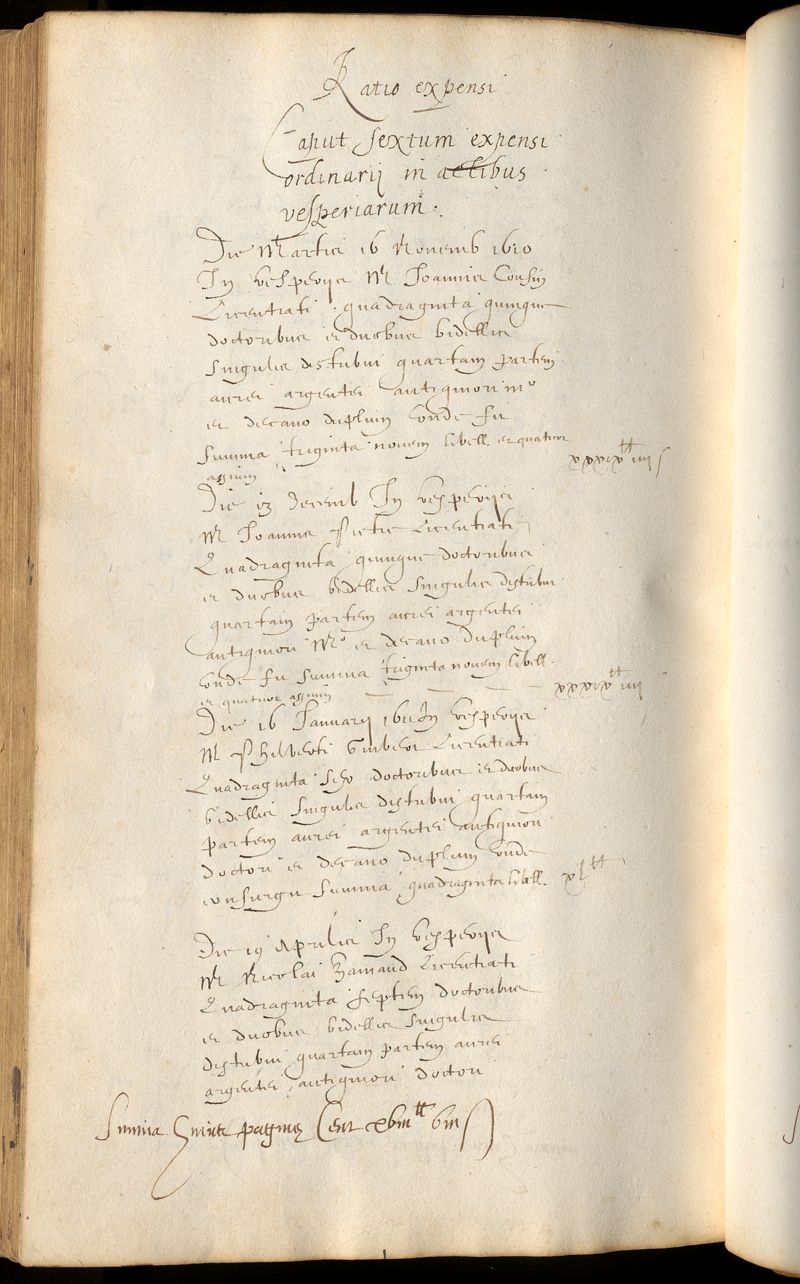 Ratio expensi
Caput sextum expensi
ordinarij in actibus
vesperiarum.
Die Martis 16 Novemb 1610
In vesperijs Mri Ioannis Cousin
Licentiati quadraginta quinque
doctoribus et duobus bidellis
singulis distribui quartam partem
aurei argentei antiquiori mro
et decano duplum unde fit
summa triginta novem libell. et quatuor
assium xxxix tt iiii s
Die 13 Decemb In vesperijs
Mri Ioannis Licentiati
Quadraginta quinque doctoribus
et duobus bidellis singulis distribui
quartam partem aurei argentei
antiquiori Mro et decano duplum
unde fit summa triginta novem libell.
et quatuor assium xxxix tt iiii
Die 16 Ianuarij 1611 In vesperijs
Mri Philberti Licentiati
Quadraginta sex doctoribus et duobus
bidellis singulis distribui quartam
partem aurei argentei antiquiori
doctori et decano duplum unde
consurgit summa quadraginta libell. xl tt
Die 19 Aprilis In vesperijs
Mri Nicolai Licentiati
Quadraginta septem doctoribus
et duobus bidellis singulis
distribui quartam partem aurei
argentei antiquiori doctori
Summa huius paginę Cent xviii tt viii s